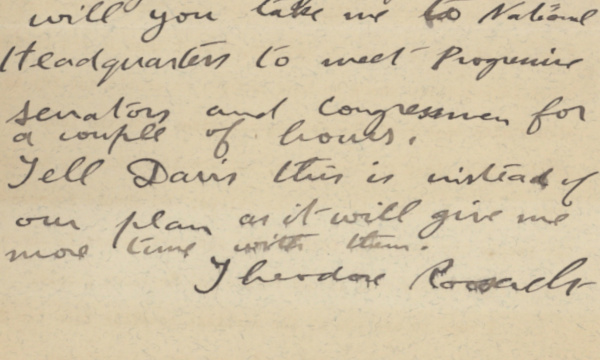 will you take me to National
Headquarters to meet Progressive
senators and Congressmen for
a couple of hours.
Tell Davis this is instead of
our plan as it will give me
more time with them.
Theodore Roosevelt